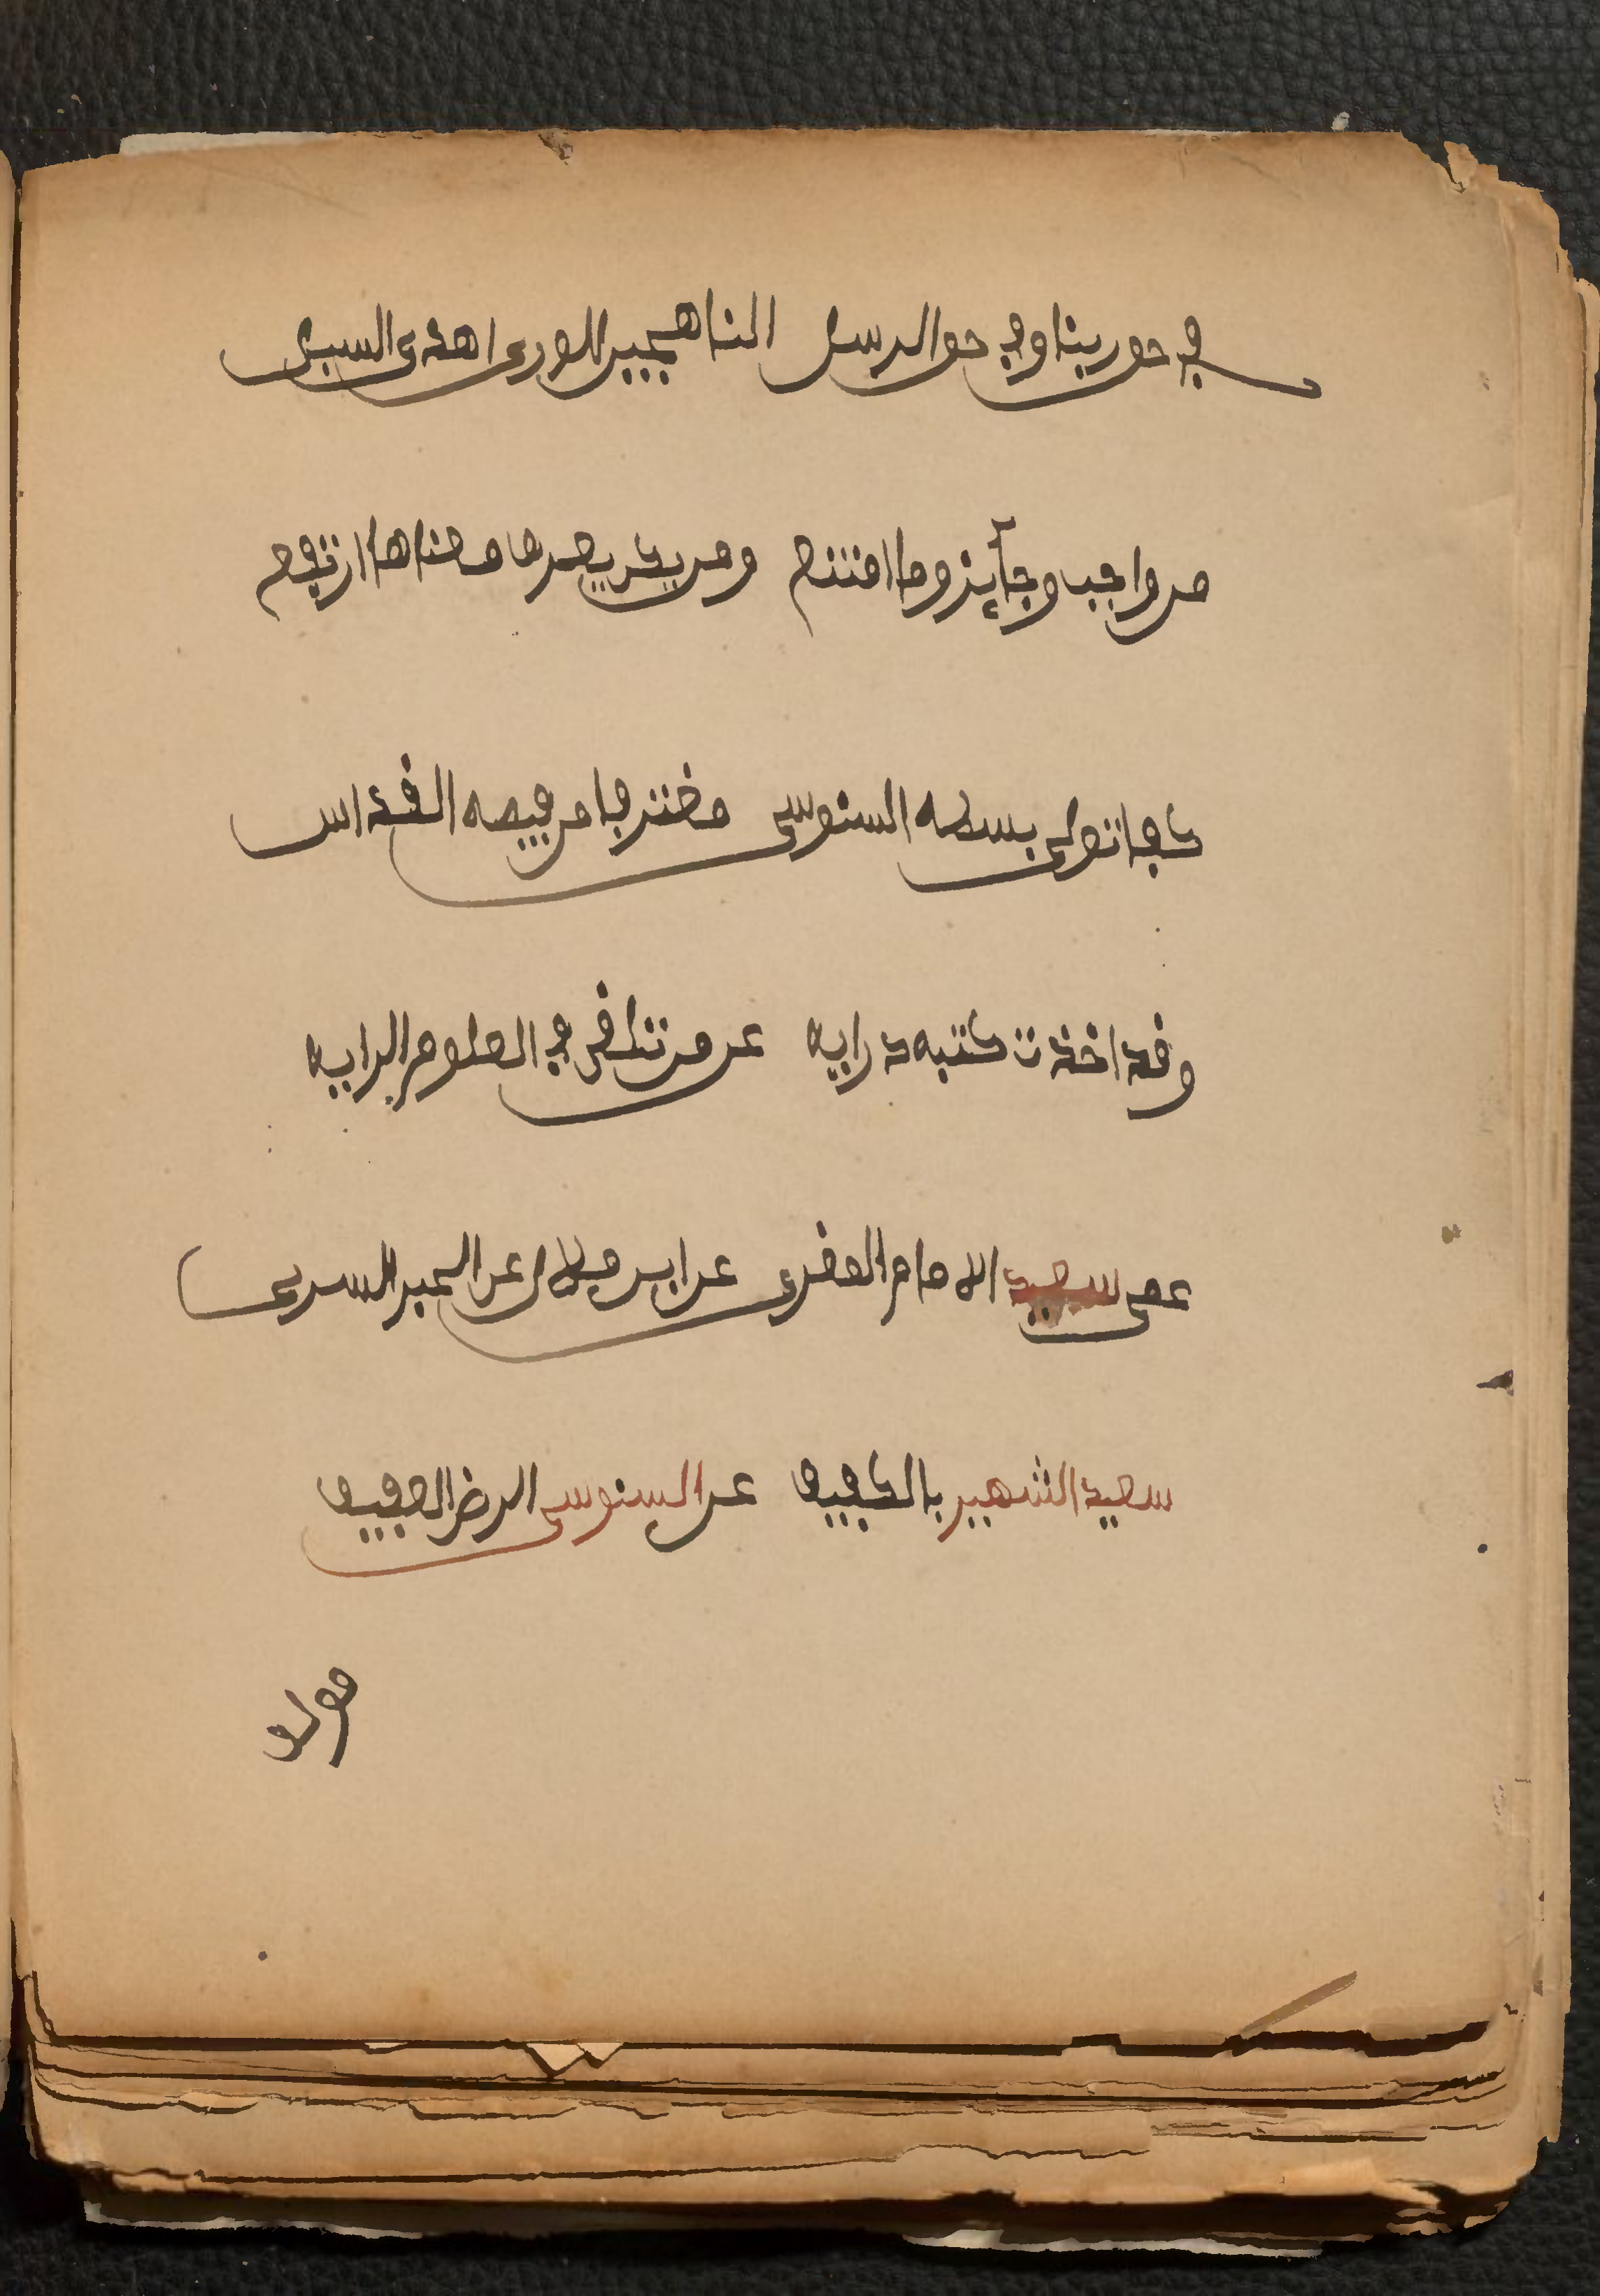 في حق ربنا وفي حق الرسل الناهجين للورى اهدى السبل
من واجب وجآئز وما امتنع ومن يكن يعرف معناها ارتفع
كما تولى بسطه السنوسي مغترفا من فيضه القداس
وقد اخذت كتبه درايه عن من تلقى في العلوم الرايه
عمى سعيد الامام المقرى عن ابن ملال عن الحبر السرى
سعيد الشهير بالكفيف عن السنوسى الرضى العفيف